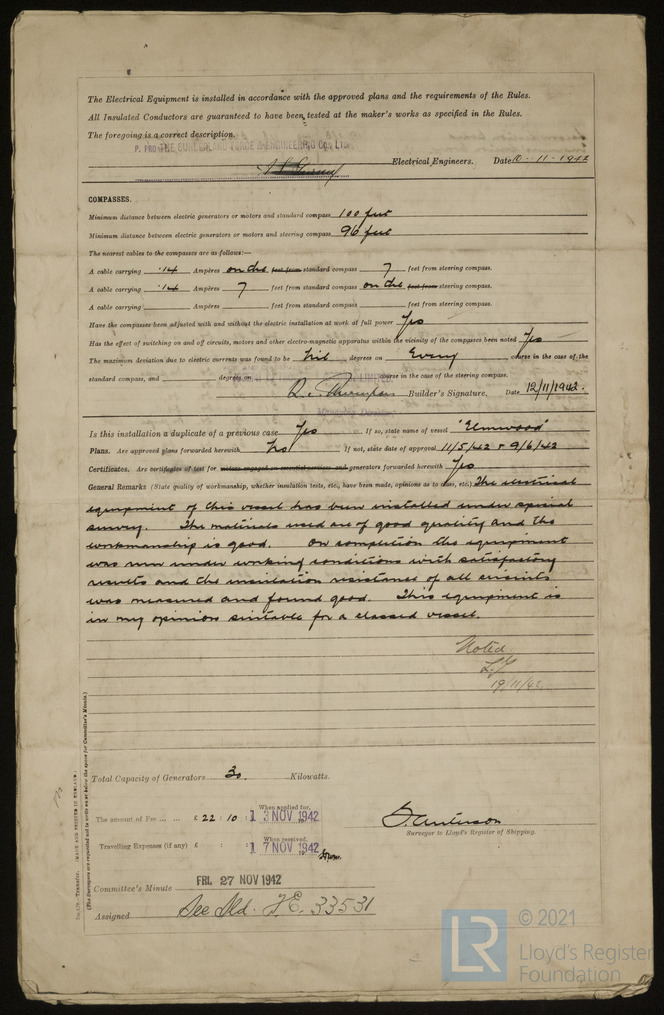 The Electrical Equipment is installed in accordance with the approved plans and the requirements of the Rules.
All Insulated Conductors are guaranteed to have been tested at the maker's works as specified in the Rules.
The foregoing is a correct description.
P. PRO THE SUNDERLAND FORGE & ENGINEERING CO., LTD.
Electrical Engineers. Date 10-11-1942
COMPASSES.
Minimum distance between electric generators or motors and standard compass 100 feet
Minimum distance between electric generators or motors and steering compass 96 feet
The nearest cables to the compasses are as follows:—
A cable carrying .14 Ampères on the feet from standard compass 7 feet from steering compass.
A cable carrying .14 Ampères 7 feet from standard compass on the feet from steering compass.
A cable carrying Ampères feet from standard compass feet from steering compass.
Have the compasses been adjusted with and without the electric installation at work at full power Yes
Has the effect of switching on and off circuits, motors and other electro-magnetic apparatus within the vicinity of the compasses been noted Yes
The maximum deviation due to electric currents was found to be Nil degrees on Every course in the case of the
standard compass, and degrees on course in the case of the steering compass.
LIMITED.
Builder's Signature. Date 12/11/1942.
Is this installation a duplicate of a previous case Yes If so, state name of vessel "Elmwood"
Plans. Are approved plans forwarded herewith No If not, state date of approval 11/5/42 + 9/6/42
Certificates. Are certificates of test for motors engaged on essential services and generators forwarded herewith Yes
General Remarks (State quality of workmanship, whether insulation tests, etc., have been made, opinions as to class, etc.) The electrical
equipment of this vessel has been installed under special
survey. The materials used are of good quality and the
workmanship is good. On completion the equipment
was run under working conditions with satisfactory
results and the insulation resistance of all circuits
was measured and found good. This equipment is
in my opinion suitable for a classed vessel.
Noted
19/11/42.
Total Capacity of Generators 30. Kilowatts.
The amount of Fee ... ... £ 22 : 10 : When applied for, 13 NOV 1942
Surveyor to Lloyd's Register of Shipping.
Travelling Expenses (if any) £ : : When received, 17 NOV 1942
Committee's Minute FRI. 27 NOV 1942
Assigned See F.E. 33531
(MADE AND PRINTED IN ENGLAND.)
(The Surveyors are requested not to write on or below the space for Committee's Minute.)
LR
© 2021
Lloyd's Register
Foundation